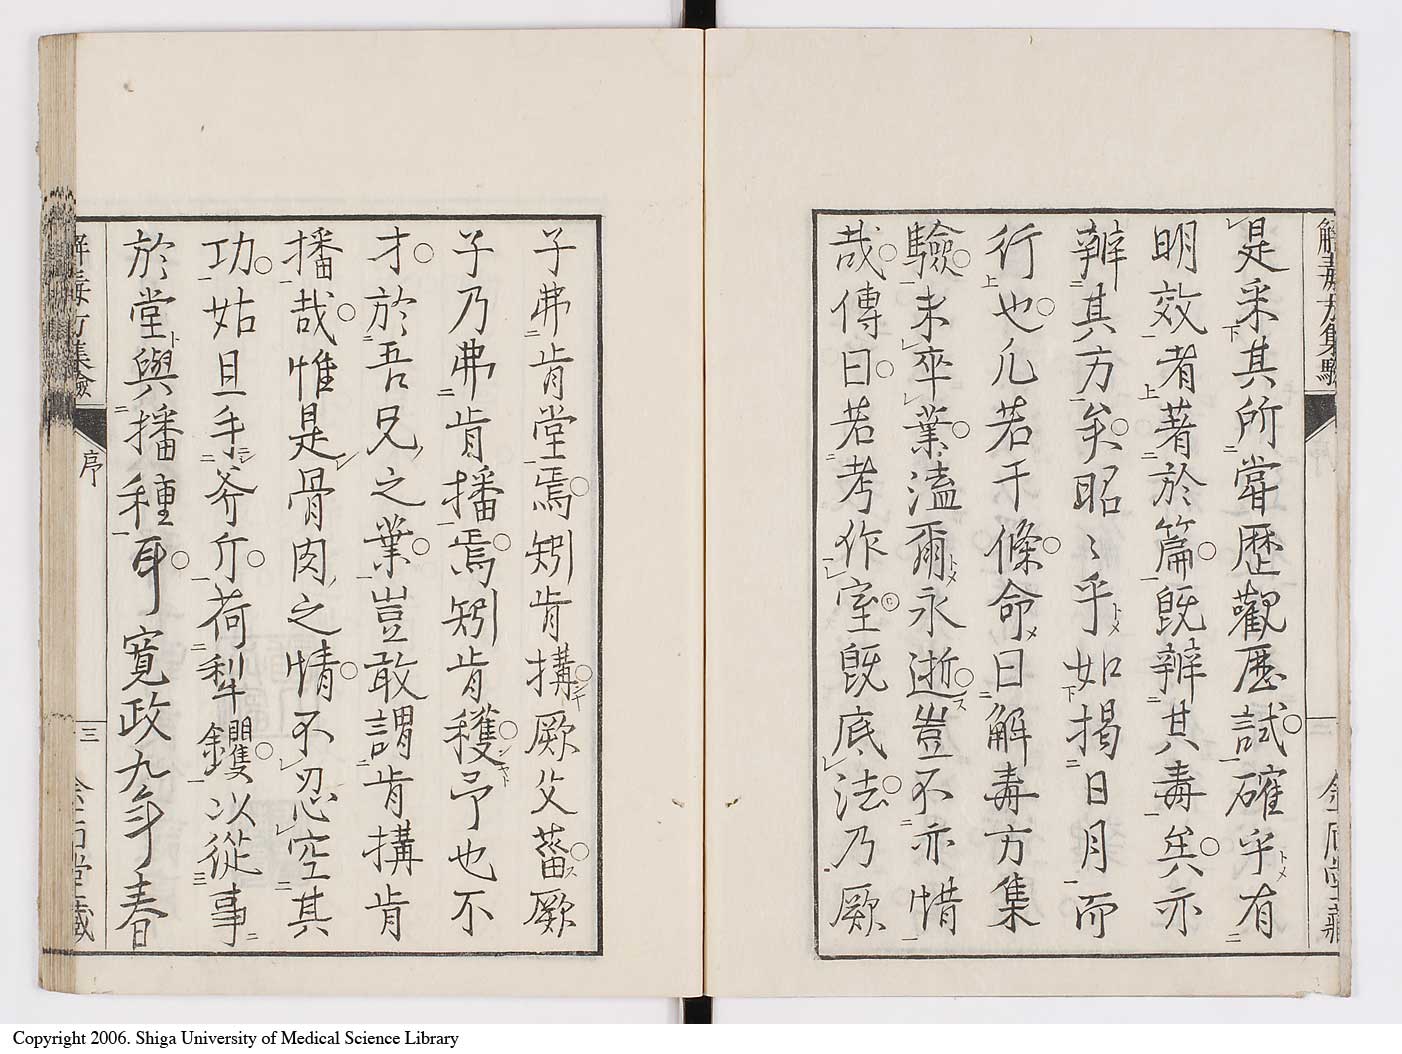 解毒方集驗
序
是采其所嘗歷觀歷試確乎有
明效者著於篇既辨其毒矣亦
辨其方矣昭〻乎如揭日月而
行也凡若干條命曰解毒方集
驗未卒業溘爾永逝豈不亦惜
哉傳曰若考作室既底法乃厥
子弗肯堂焉矧肯搆厥父菑厥
子乃弗肯播焉矧肯穫予也不
才於吾兄之業豈敢謂肯搆肯
播哉惟是骨肉之情不忍空其
功姑且手斧斤荷犁钁以從事
於堂與播種耳寬政九年春
解毒方集驗
序
三
Copyright 2006. Shiga University of Medical Science Library